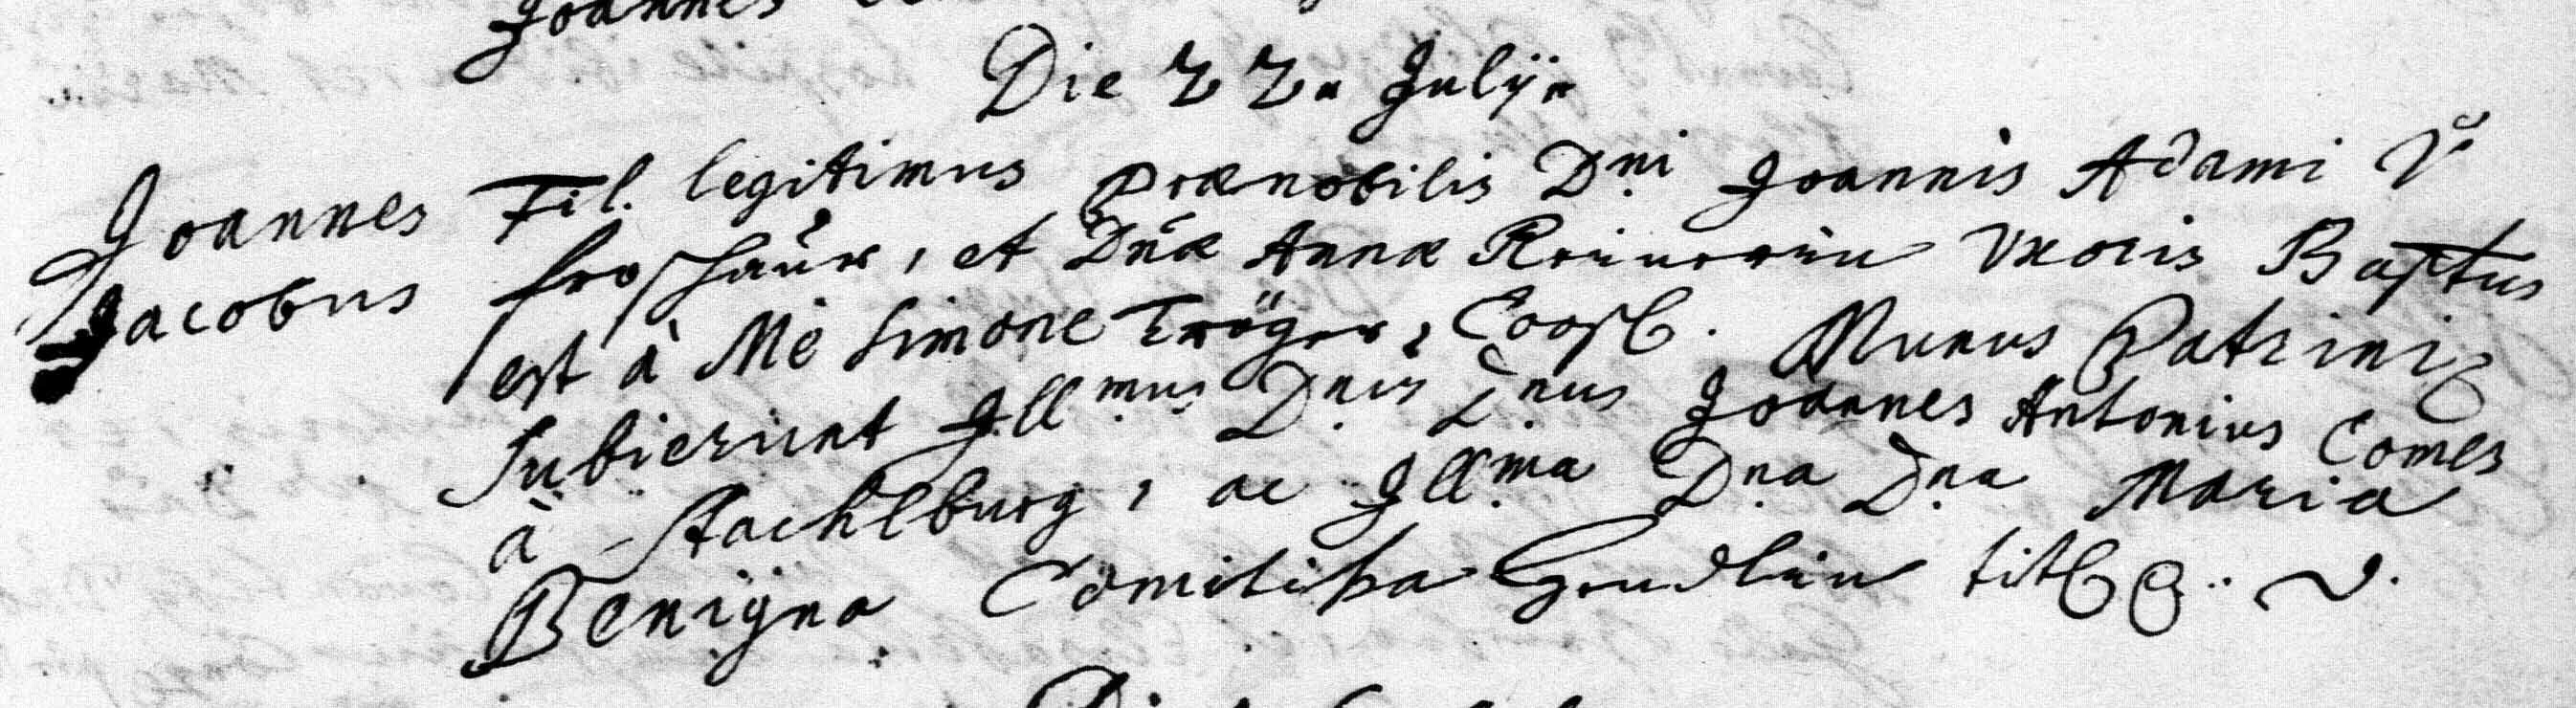 Joannes
Die 22. Julij.
Joannes Fil. legitimus Prænobilis Dni Joannis Adami Vº
Jacobus froschaur, et Dnæ Annæ Uxoris Baptus
est à Me Simone Tröger, Coosb. Munus Patrini
Subierunt Illmus Dnus Dnus Joannes Antonius Comes
à Stachlburg, ac Illma Dna Dna Maria
Benigna Comitissa titl